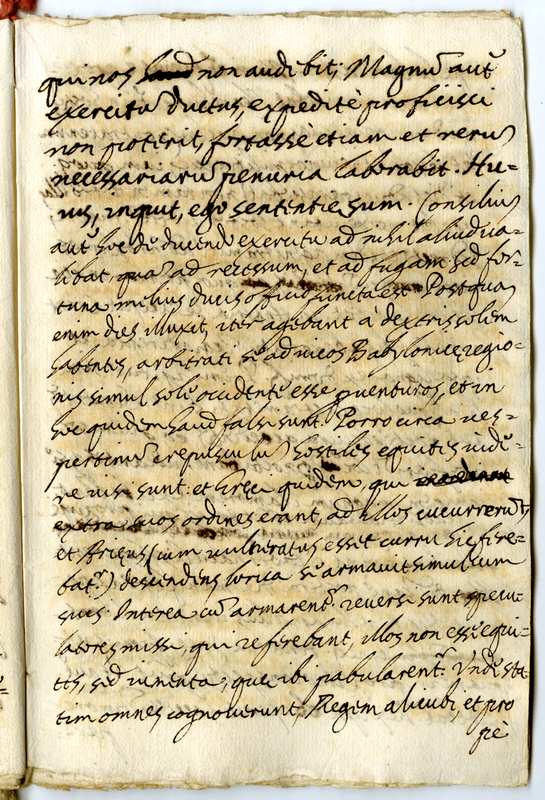 qui nos haud non audebit; Magnū aūt
exercitū ductus, expeditè proficisci
non poterit, fortassè etiam et rerū
necessariarū penuria laborabit. Hu-
ius, inquit, ego sententiæ sum. Consiliū
aūt hoc dē ducendo exercitu ad nihil aliud ua-
libat, quā ad recessum, et ad fugam sed for-
tuna melius ducis officio functa est. Postquā
enim dies illuxit, iter agebant à dextris solem
habentes, arbitrati sē ad uicos Babylonicæ regio-
nis simul solē occidentē esse puenturos, et in
hoc quidem haud falsi sunt. Porro circa ues-
pertinū crepusculū hostiles equites uidē-
re uisi sunt: et Græci quidem, qui
extra suos ordines erant, ad illos cucurrerūt,
et Ariæus (cum uulneratus esset curru hic fere-
batr) descendens lorica sē armauit simul cum
suis. Interea cū armarentr reuersi sunt specu-
latores missi, qui referebant, illos non essē equi-
tes, sed iumenta, quæ ibi pabularentr. Vndē sta-
tim omnes cognouerunt, Regem alicubi, et pro
pè